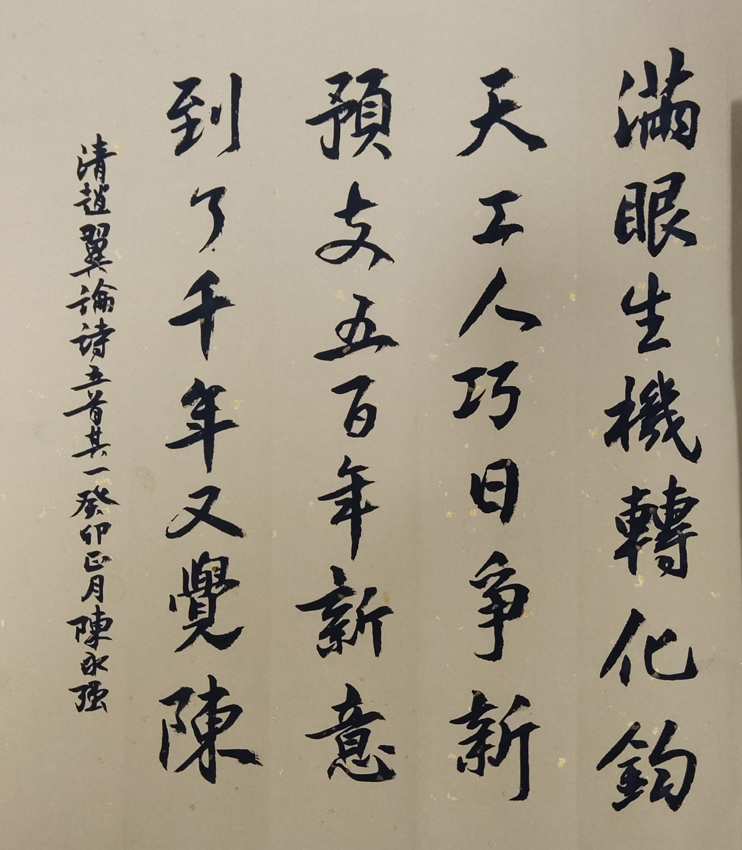 滿眼生機轉化鈞
天工人巧日爭新
預支五百年新意
到了千年又覺陳
清趙翼論詩五首其一癸卯正月陳永强